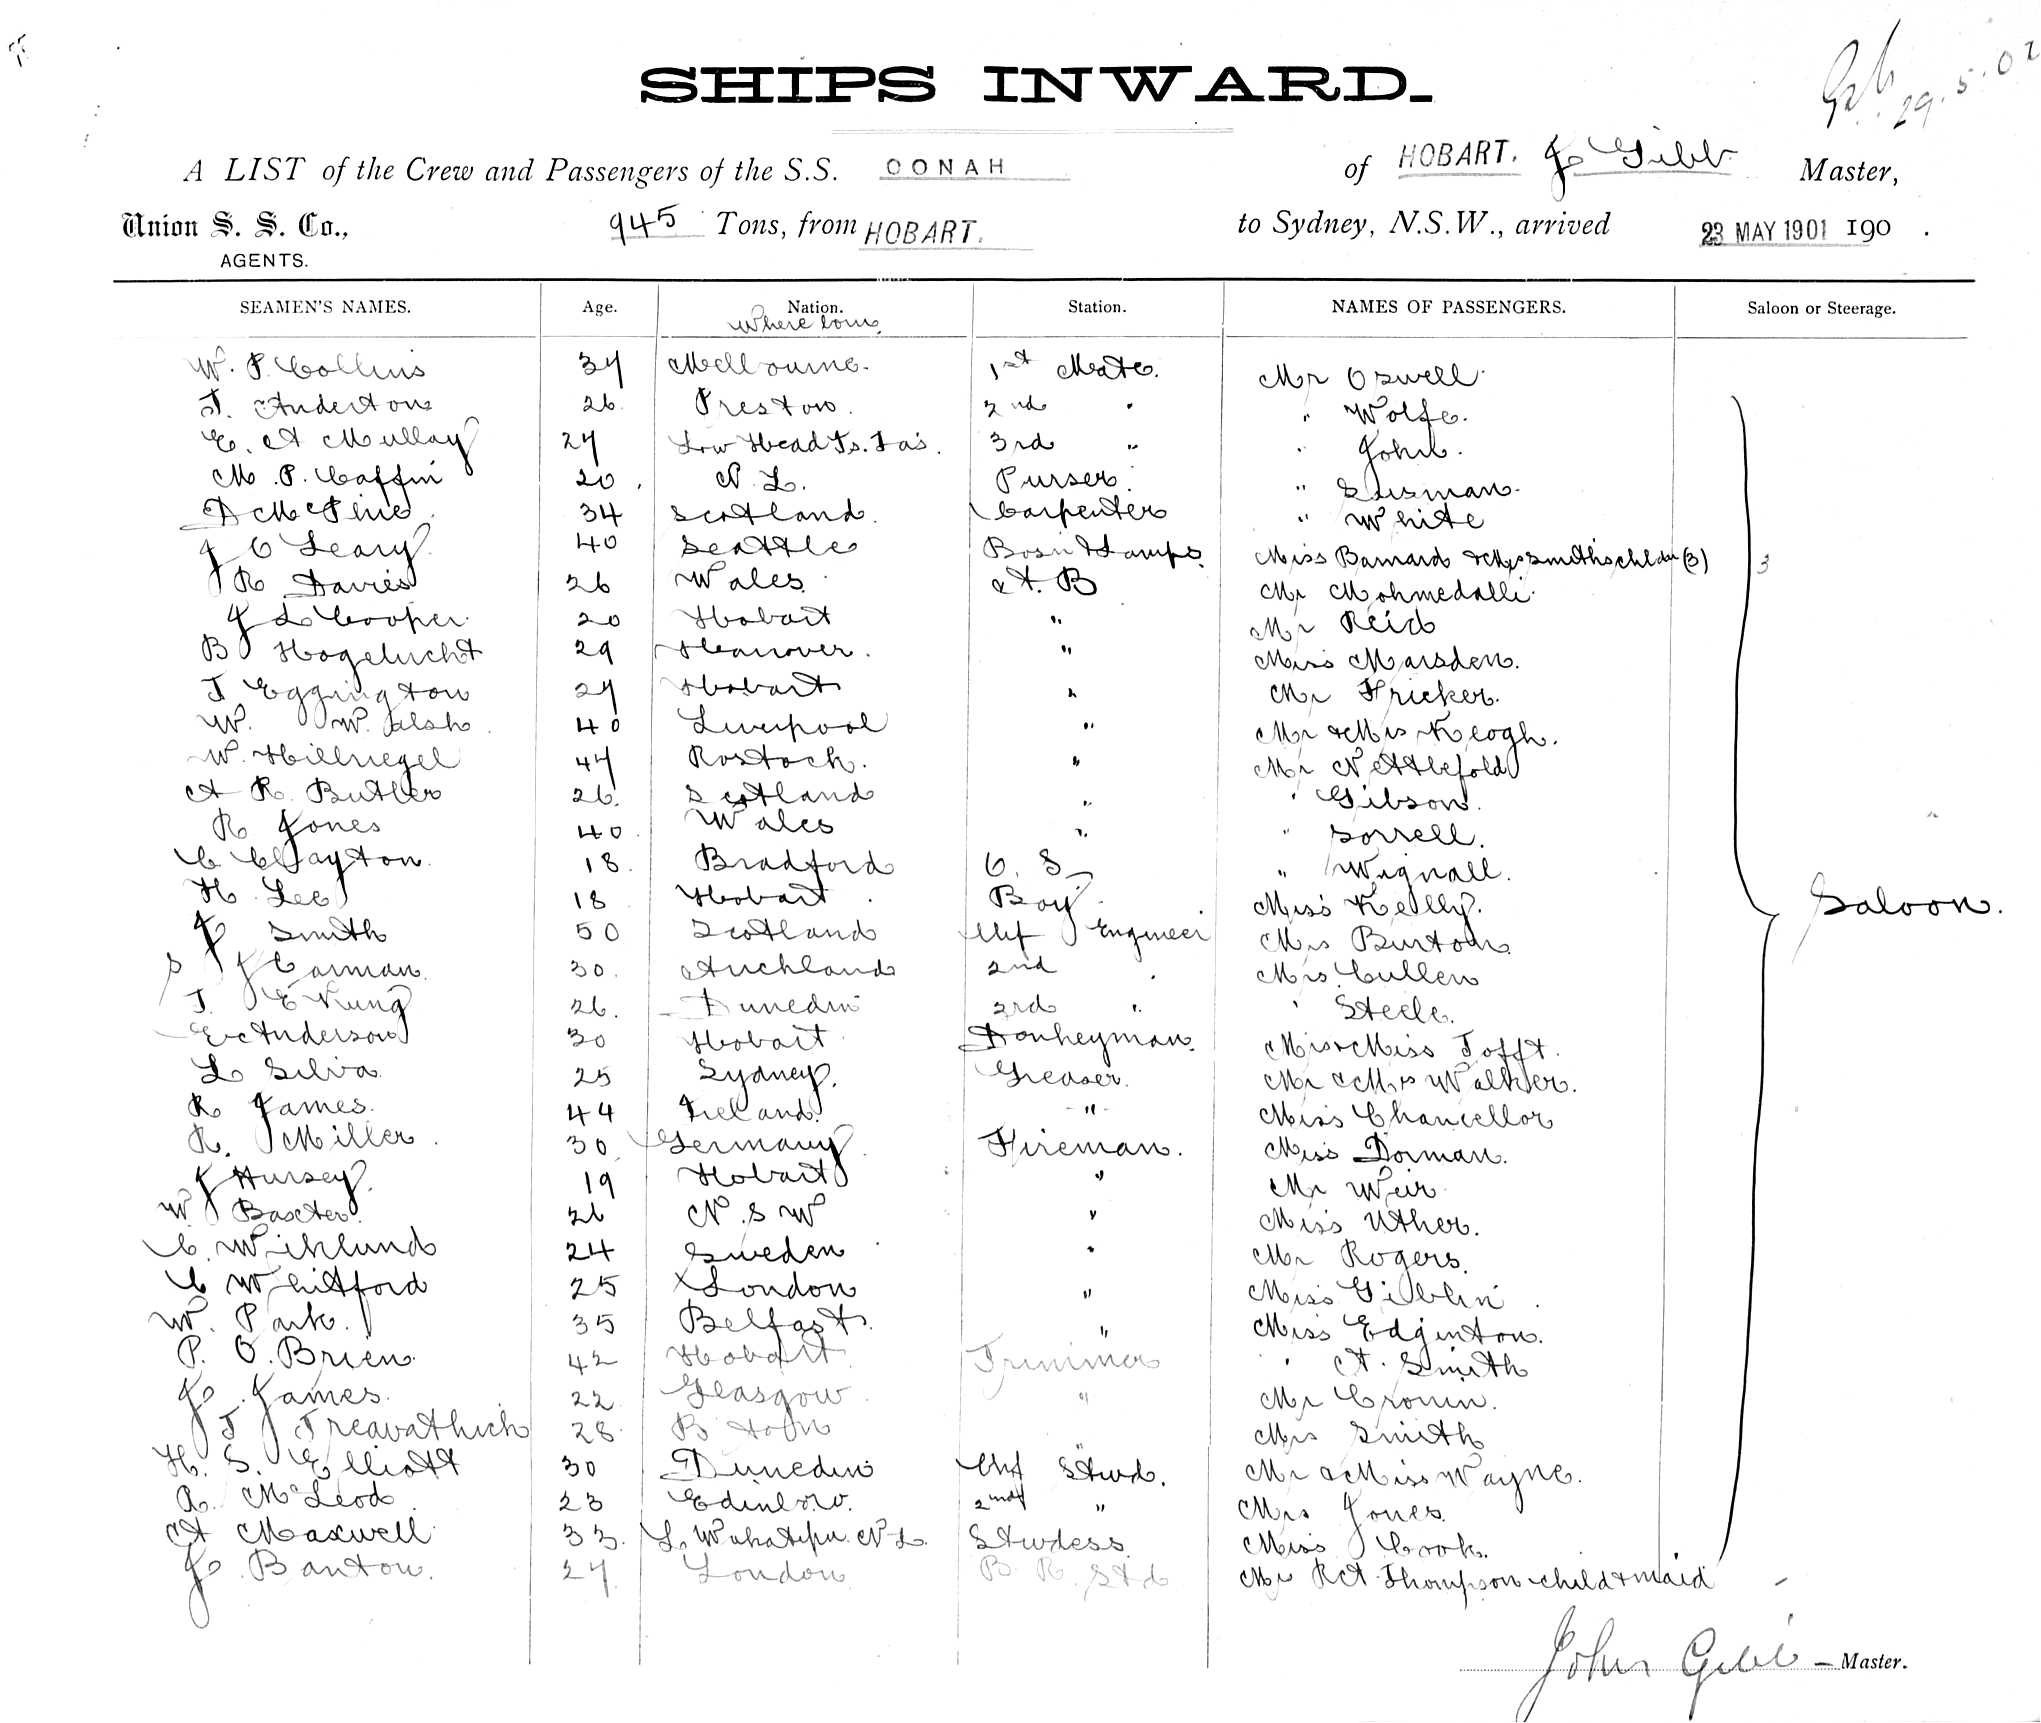 29.5.02
SHIPS INWARD.
A LIST of the Crew and Passengers of the S.S. OONAH of HOBART. J Gibb Master,
Union S. S. Co., 945 Tons, from HOBART. to Sydney, N.S.W., arrived 23 MAY 1901 190 .
AGENTS.
SEAMEN'S NAMES. Age. Nation. Station. NAMES OF PASSENGERS. Saloon or Steerage.
Where born
W. P. Collins 37 Melbourne. 1st Mate. Mr Oswell
T. Anderton 26. Preston. 2nd " " Wolfe.
E. A Mullay 27 Low Head Ts. Tas. 3rd " " John.
M. P. Caffin 20. N. Z. Purser. " Susman.
D McPhie 34 Scotland. Carpenter " White
J O Leary 40 Seattle Bosn & Lamps. Miss Barnard & Mrs Smiths childn (3) 3
R Davies 26 Wales. A. B Mr Mohmedalli
J L Cooper 20 Hobart " Mr Reid
B Hogelucht 29 Hanover. " Miss Marsden.
T Eggington 27 Hobart " Mr Fricker.
W. Walsh 40 Liverpool " Mr & Mrs Keogh.
W. Hillriegel 47 Rostock. " Mr Nettlefold
A R. Butler 26. Scotland " " Gibson.
R Jones 40 Wales " " Sorrell.
C Clayton. 18. Bradford O. S " Wignall.
H. Lee 18 Hobart. Boy. Miss Kelly. Saloon.
J Smith 50 Scotland Chf Engineer Mrs Burton
J Carman. 30. Auckland 2nd " Mrs. Cullen
T. E Kung 26. Dunedin 3rd " " Steele.
E Anderson 30 Hobart Donkeyman. Mrs & Miss Tofft.
L Silva 25 Sydney. Greaser. Mr & Mrs Walker.
R James. 44 Ireland. " Miss Chancellor
R. Miller. 30. Germany Fireman. Miss Dorman.
J Hursey. 19 Hobart " Mr Weir
W Baxter. 26 N. S W " Miss Uther.
C. Wiklund 24 Sweden " Mr Rogers.
C Whitford 25 London " Miss Giblin
W. Park. 35 Belfast. " Miss Edginton.
P. O. Brien. 42 Hobart Trimmer " A. Smith
J. James. 22 Glasgow. " Mr Cronin.
T Treavathick 28. B Town " Mrs Smith
H. S. Elliott 30 Dunedin Chf Stwd. Mr & Miss Wayne.
R. McLeod 23 Edinboro. 2nd " Mrs Jones.
A Maxwell 33. L. Wakatipu N Z. Stwdess. Miss Cook.
J. Banton. 27. London B. R. Std Mr R A. Thompson child & maid
John Gibb Master.